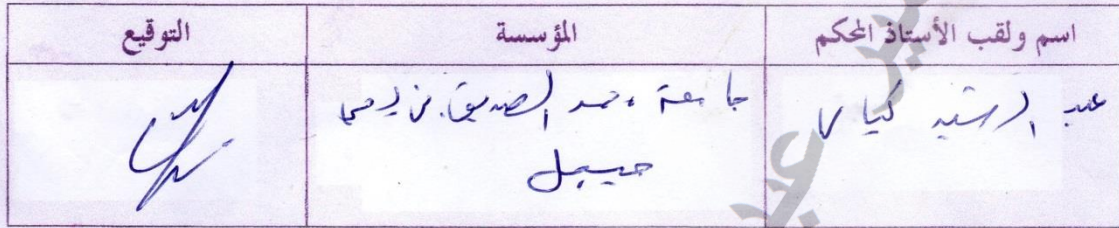 اسم ولقب الأستاذ المحكم
المؤسسة
التوقيع
عبد الرشيد
جامعة محمد الصديق بن يحيى
جيجل